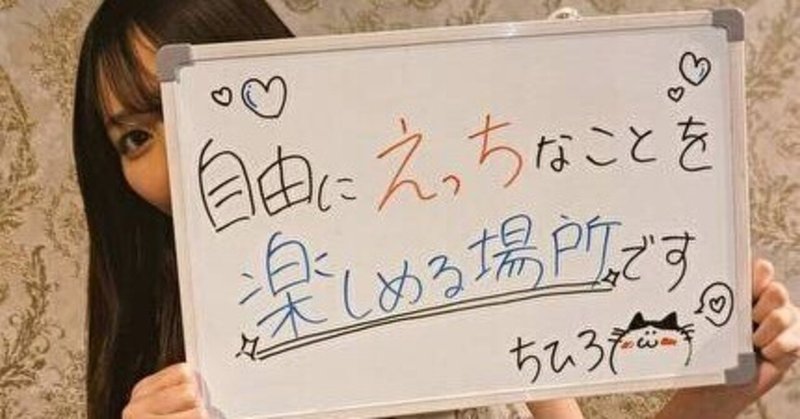 自由にえっちなことを
楽しめる場所です
ちひろ